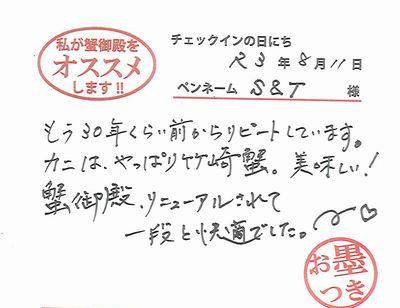 私が蟹御殿を
オススメ
します!!
チェックインの日にち
R3年8月11日
ペンネーム S&T 様
もう30年くらい前からリピートしています。
カニは、やっぱり竹崎蟹。美味しい!
蟹御殿、リニューアルされて
一段と快適でした。
お墨
つき